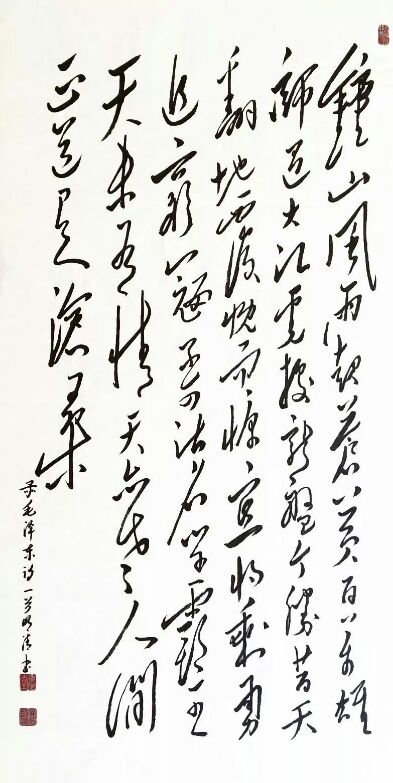 鐘山風雨起蒼黃百萬雄
師過大江虎踞龍盤今勝昔天
翻地覆慨而慷宜將剩勇
追窮寇不可沽名學霸王
天若有情天亦老人間
正道是滄桑
录毛泽东诗一首